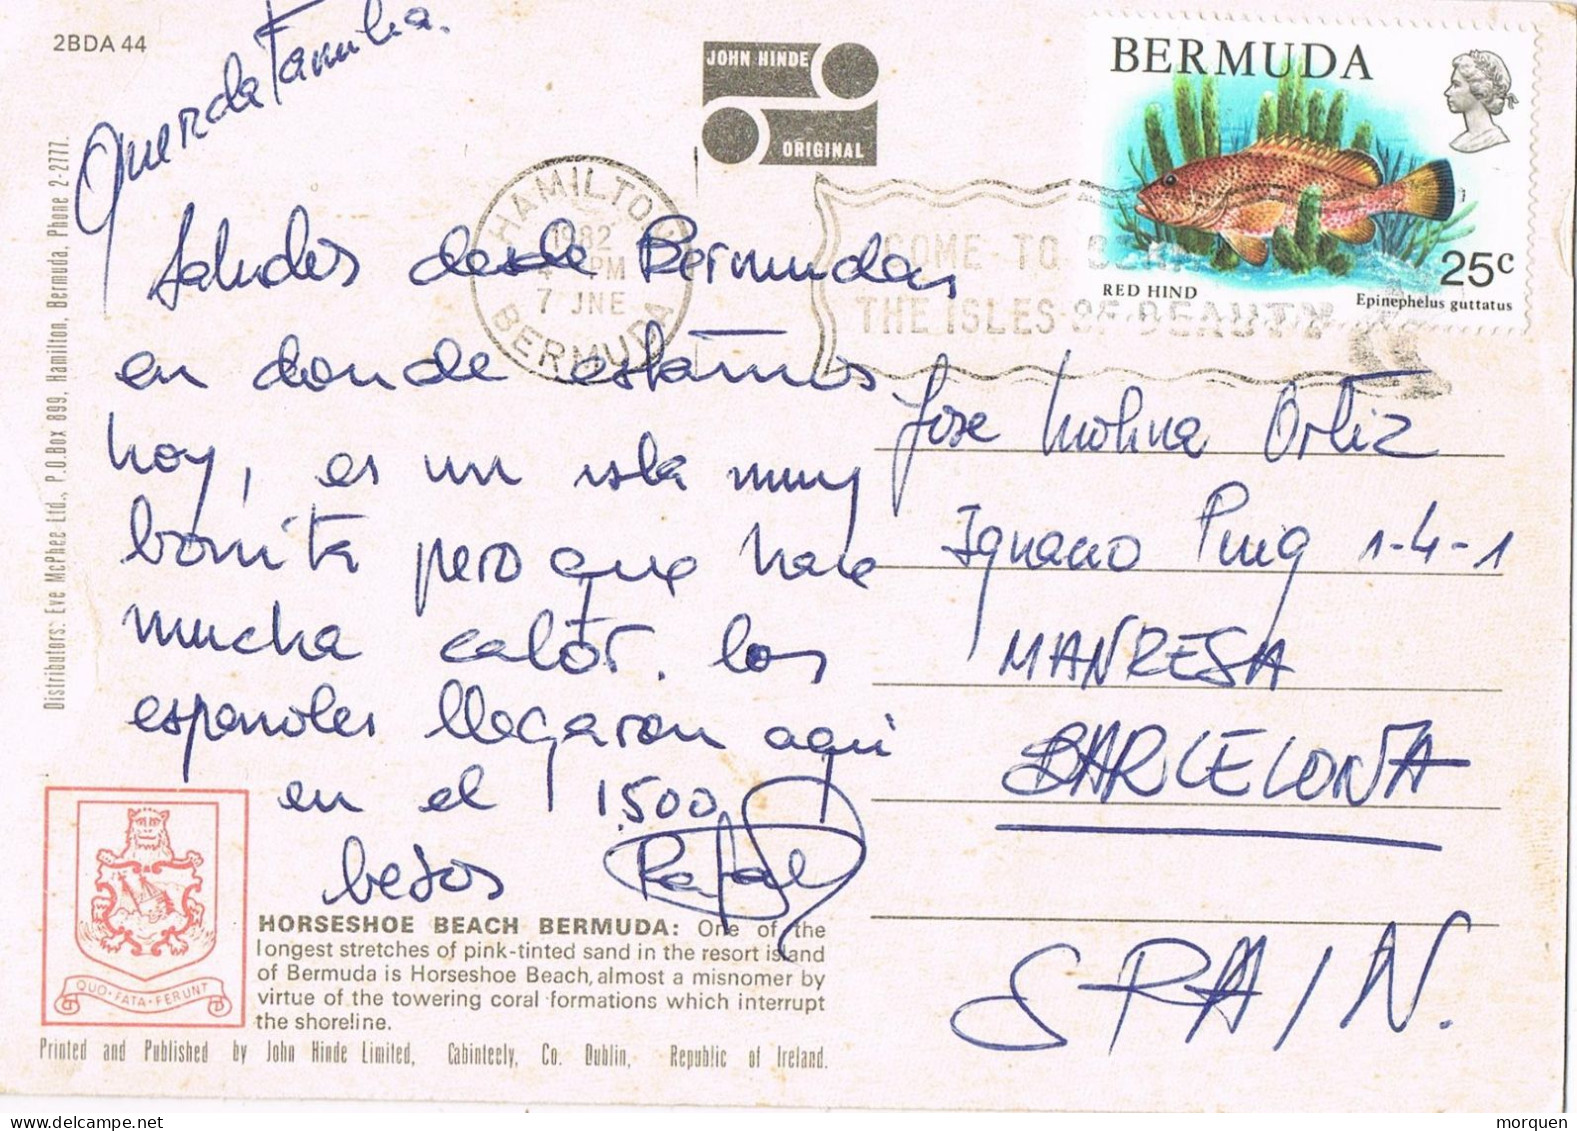 2BDA 44
Querida Familia.
Saludos desde Bermudas
en donde estamos
hoy, es un isla muy
bonita pero que hace
mucha calor. los
españoles llegaron aqui
en el 1.500
besos Rafael
JOHN HINDE
ORIGINAL
HAMILTON
1982
PM
7 JNE
BERMUDA
COME TO
THE ISLES OF BEAUTY
BERMUDA
RED HIND
25c
Epinephelus guttatus
Jose Molina Ortiz
Ignacio Puig 1-4-1
MANRESA
BARCELONA
SPAIN.
Distributors: Eve McPhee Ltd., P.O.Box 899, Hamilton, Bermuda, Phone 2-2777.
QUO·FATA·FERUNT
HORSESHOE BEACH BERMUDA: One of the
longest stretches of pink-tinted sand in the resort island
of Bermuda is Horseshoe Beach, almost a misnomer by
virtue of the towering coral formations which interrupt
the shoreline.
Printed and Published by John Hinde Limited, Cabinteely, Co. Dublin, Republic of Ireland.
morquen